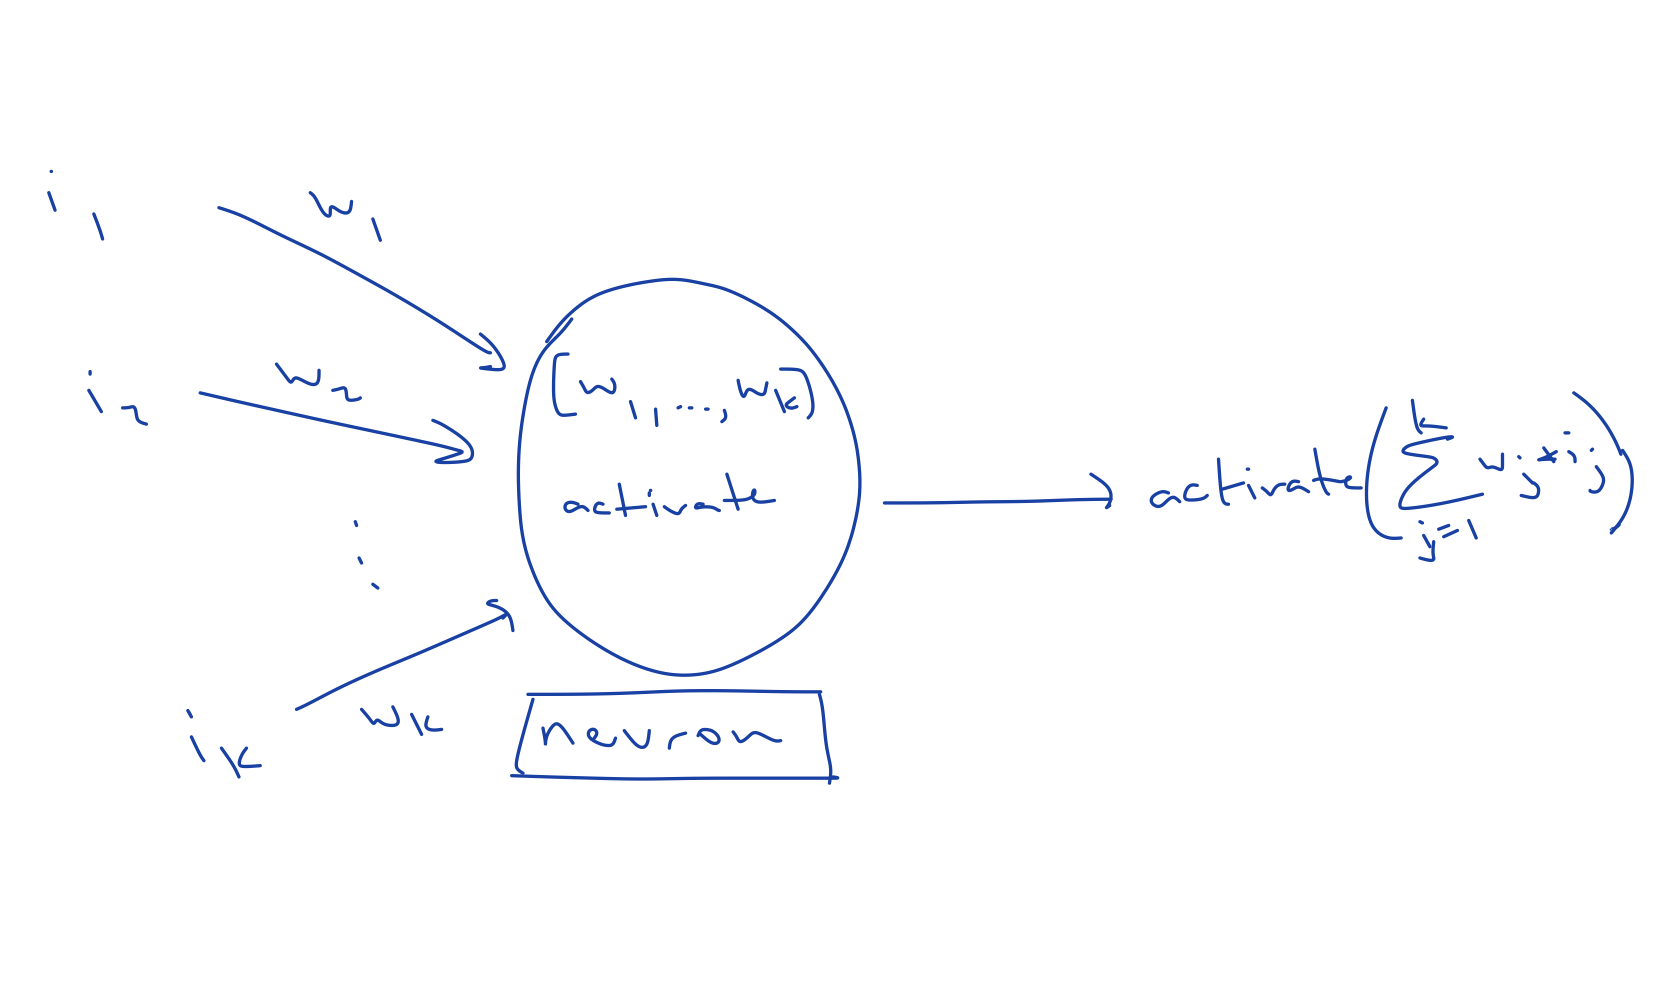 i₁
w₁
i₂
w₂
⋮
iₖ
wₖ
[w₁, ..., wₖ]
activate
neuron
activate(∑ⱼ₌₁ᵏ wⱼ * iⱼ)